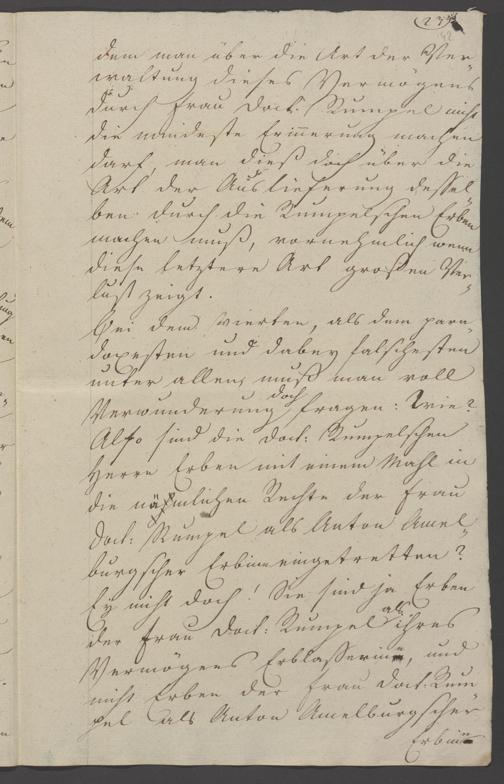 234
42
dem man über die Art der Ver„
waltung dieses Vermögens
durch Frau Doct: Rumpel nicht
die mindeste Erinnerung machen
darf, man dieß doch über die
Art der Auslieferung dessel„
ben durch die Rumpelschen Erben
machen muß, vornehmlich wenn
diese letztere Art großen Ver„
lust zeigt.
Bei dem vierten, als dem para„
doxesten und dabey falschesten
unter allen, muß man voll
Verwunderung doch fragen: Wie?
Also sind die Doct: Rumpelschen
Herrn Erben mit einem Mahl in
die nämlichen Rechte der Frau
Doct: Rumpel als Anton Amel„
burgscher Erbinn eingetretten?
Ey nicht doch! Sie sind ja Erben
der Frau Doct: Rumpel als ihres
Vermögens Erblasserinn, und
nicht Erben der Frau Doct: Rum„
pel als Anton Amelburgscher
Erbinn